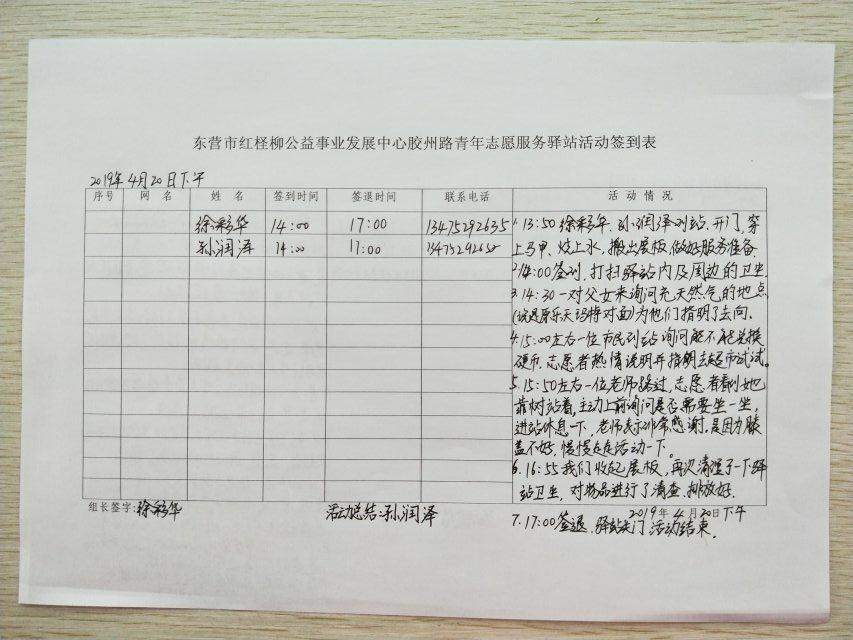 东营市红柽柳公益事业发展中心胶州路青年志愿服务驿站活动签到表
2019年4月20日下午
序号 网名 姓名 签到时间 签退时间 联系电话 活动情况
徐彩华 14:00 17:00 13475292635
孙润泽 14:00 17:00
1. 13:50徐彩华、孙润泽到站、开门,穿
上马甲、烧上水,搬出展板,做好服务准备.
2. 14:00签到,打扫驿站内及周边的卫生.
3. 14:30一对父女来询问充天然气的地点
为他们指明了去向.
4. 15:00左右一位市民到站询问能不能兑换
硬币,志愿者热情说明并指明去超市试试.
5. 15:50左右一位老师路过,志愿者看到她
靠树站着,主动上前询问是否需要坐一坐,
进站休息一下,老师表示非常感谢,是因为膝
盖不好,慢慢走走活动一下。
6. 16:55我们收起展板,再次清理了一下驿
站卫生,对物品进行了清查、排放好.
组长签字:徐彩华 活动总结:孙润泽 2019年4月20日下午
7. 17:00签退、驿站关门活动结束.